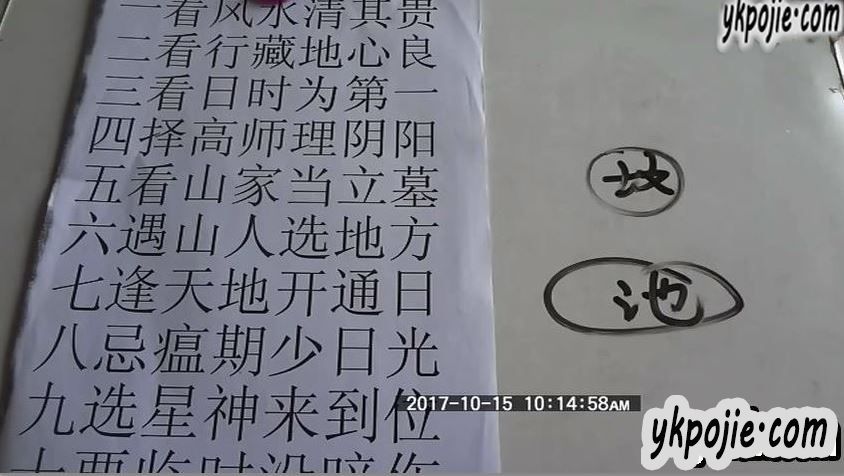 一看风水清其贵
二看行藏地心良
三看日时为第一
四择高师理阴阳
五看山家当立墓
六遇山人选地方
七逢天地开通日
八忌瘟期少日光
九选星神来到位
ykpojie.com
池
2017-10-15 10:14:58AM
ykpojie.com